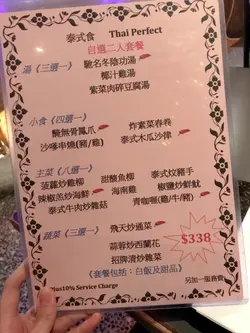 泰式食 Thai Perfect
自選二人套餐
湯《三選一》 馳名冬陰功湯
椰汁雞湯
紫菜肉碎豆腐湯
小食《四選一》
醃無骨鳳爪 炸素菜春卷
沙嗲串燒(豬/雞) 泰式木瓜沙律
主菜《八選一》
菠蘿炒雞柳 甜酸魚柳 泰式炆豬手
辣椒羔炒海鮮 海南雞 椒鹽炒鮮魷
泰式牛肉炒雞菇 青咖喱(雞/牛/豬)
蔬菜《三選一》 飛天炒通菜
蒜蓉炒西蘭花
招牌滑炒雜菜
$338
《套餐包括：白飯及甜品》
Plus10% Service Charge 另加一服務費